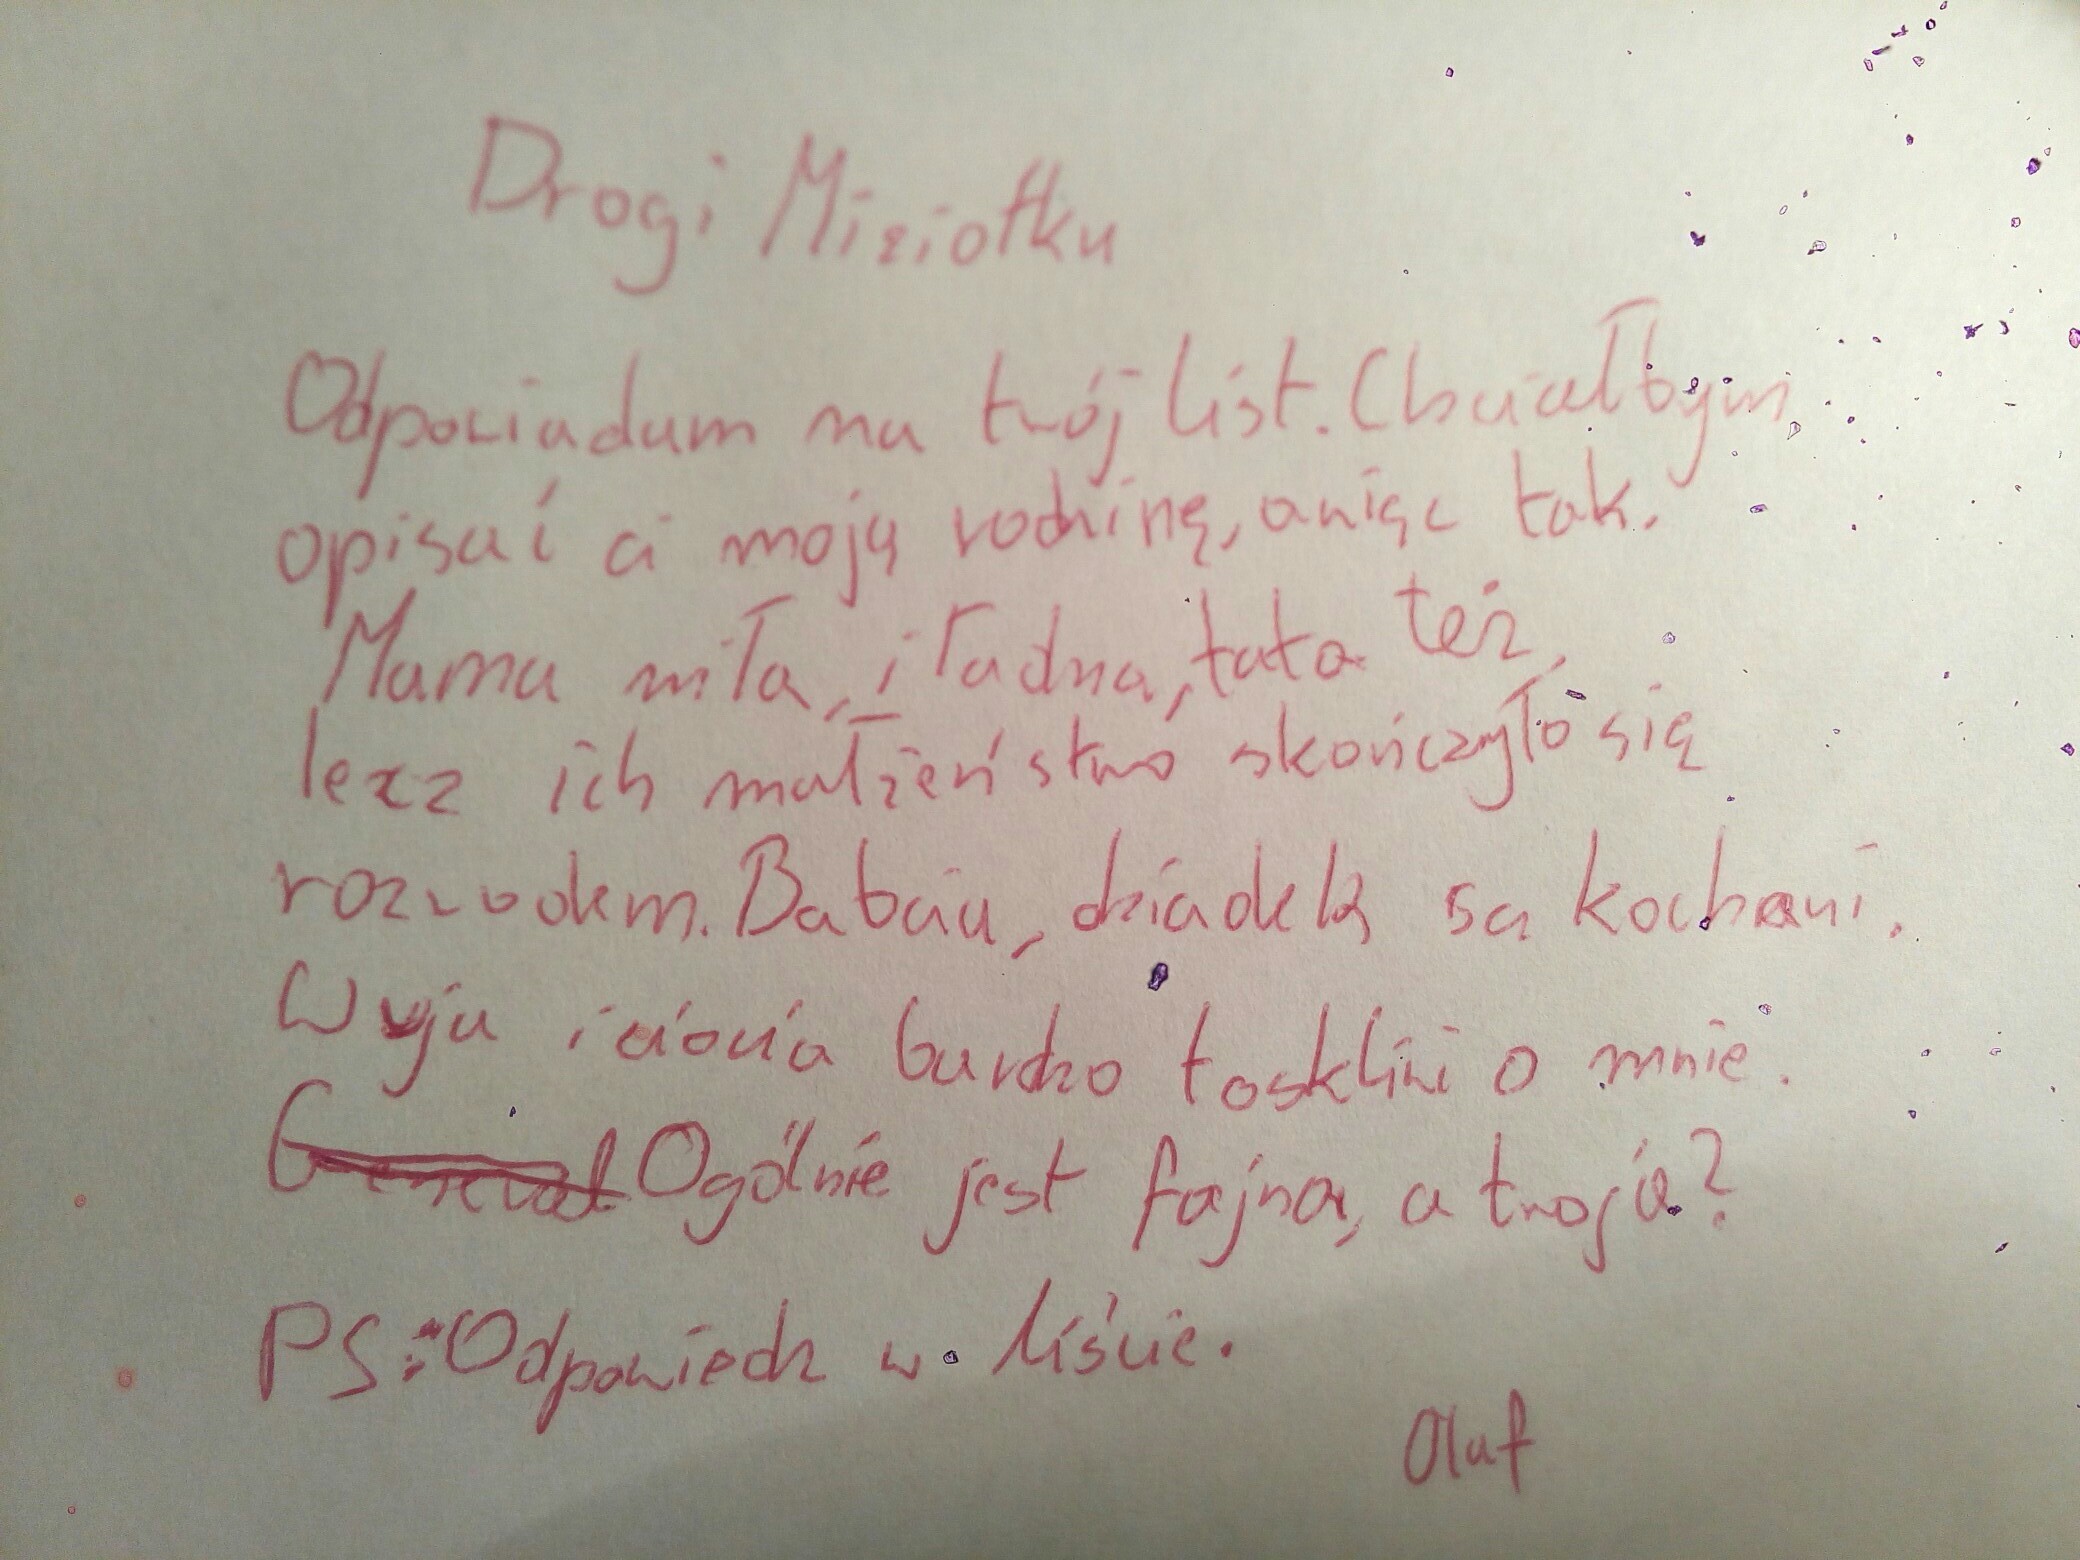 Drogi Miziołku
Odpowiadam na twój list. Chciałbym
opisać ci moją rodzinę, awięc tak.
Mama miła, i ładna, tata też,
lecz ich małżeństwo skończyło się
rozwodem. Babcia, dziadek są kochani.
Wuja i ciocia bardzo toskliwi o mnie.
General Ogólnie jest fajna, a twoja?
PS: Odpowiedz w liście.
Oluf